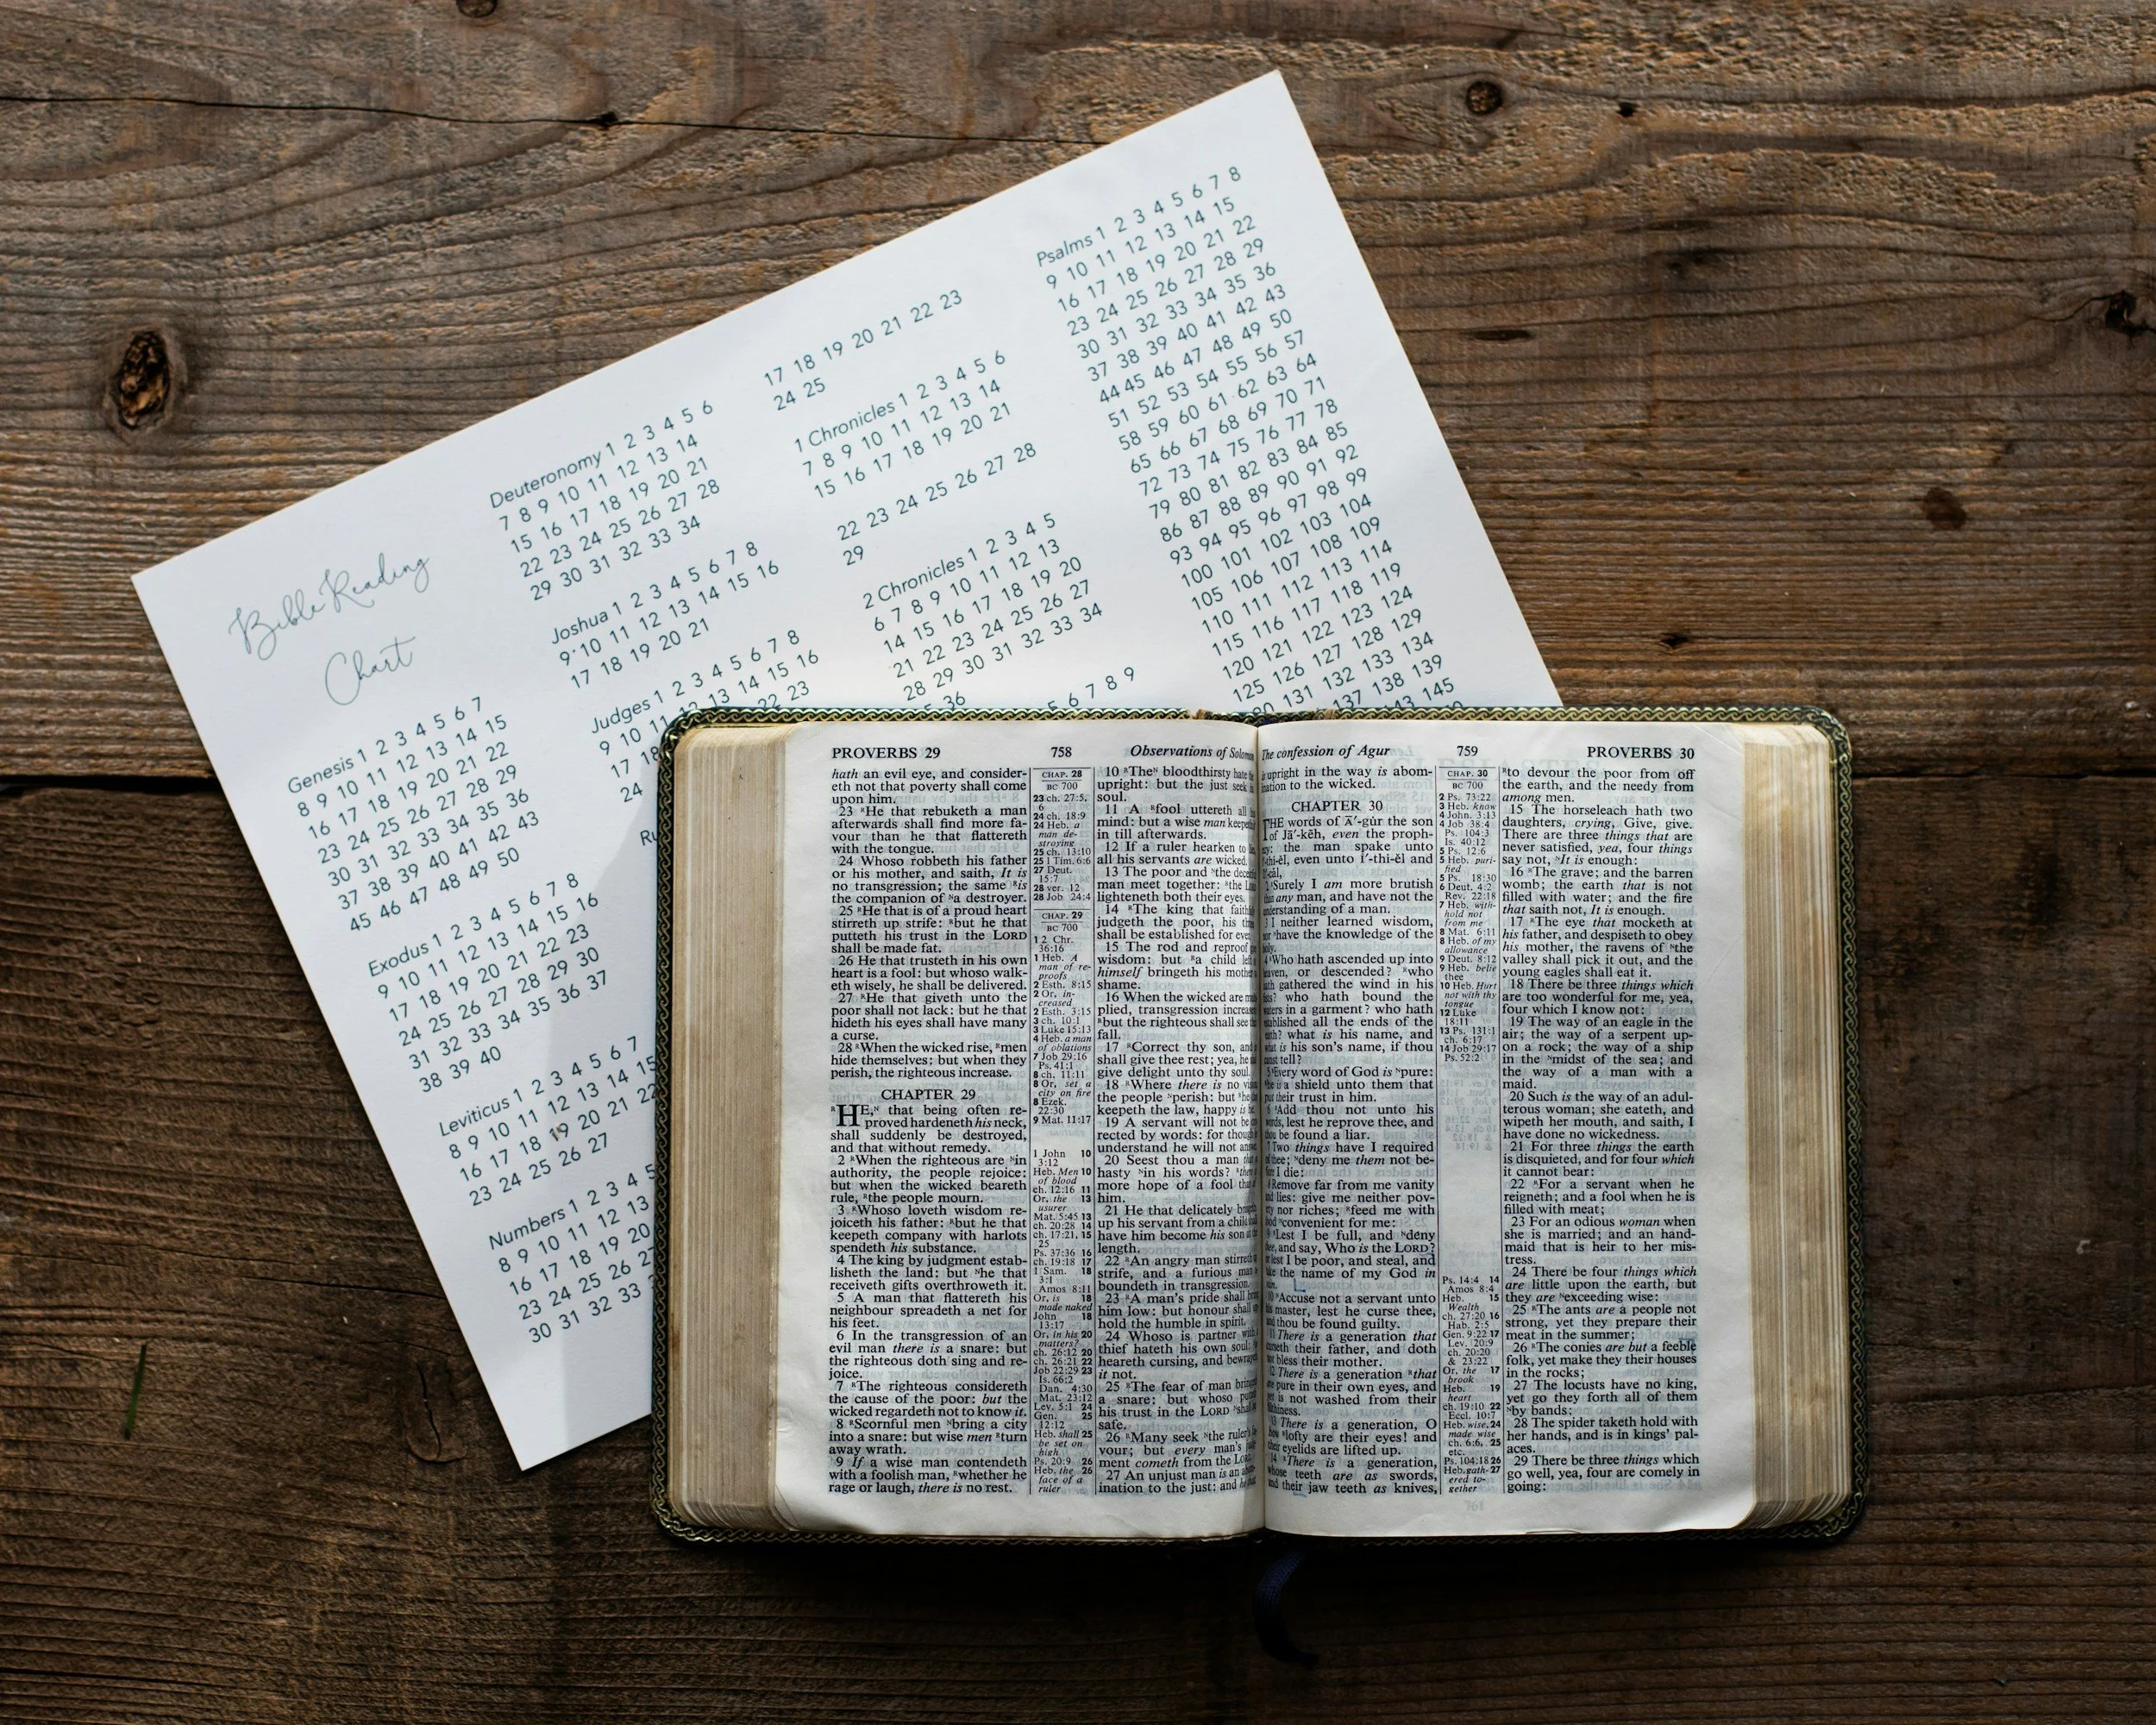 Bible Reading
Chart
Genesis 1 2 3 4 5 6 7
8 9 10 11 12 13 14 15
16 17 18 19 20 21 22
23 24 25 26 27 28 29
30 31 32 33 34 35 36
37 38 39 40 41 42 43
45 46 47 48 49 50
Exodus 1 2 3 4 5 6 7 8
9 10 11 12 13 14 15 16
17 18 19 20 21 22 23
24 25 26 27 28 29 30
31 32 33 34 35 36 37
38 39 40
Leviticus 1 2 3 4 5 6 7
8 9 10 11 12 13 14 15
16 17 18 19 20 21 22
23 24 25 26 27
Numbers 1 2 3 4 5
8 9 10 11 12 13
16 17 18 19 20
23 24 25 26 27
30 31 32 33
Deuteronomy 1 2 3 4 5 6
7 8 9 10 11 12 13 14
15 16 17 18 19 20 21
22 23 24 25 26 27 28
29 30 31 32 33 34
Joshua 1 2 3 4 5 6 7 8
9 10 11 12 13 14 15 16
17 18 19 20 21
Judges 1 2 3 4 5 6 7 8
9 10 11 12 13 14 15 16
17 18 22 23
24
17 18 19 20 21 22 23
24 25
1 Chronicles 1 2 3 4 5 6
7 8 9 10 11 12 13 14
15 16 17 18 19 20 21
22 23 24 25 26 27 28
29
2 Chronicles 1 2 3 4 5
6 7 8 9 10 11 12 13
14 15 16 17 18 19 20
21 22 23 24 25 26 27
28 29 30 31 32 33 34
36
5 6 7 8 9
Psalms 1 2 3 4 5 6 7 8
9 10 11 12 13 14 15
16 17 18 19 20 21 22
23 24 25 26 27 28 29
30 31 32 33 34 35 36
37 38 39 40 41 42 43
44 45 46 47 48 49 50
51 52 53 54 55 56 57
58 59 60 61 62 63 64
65 66 67 68 69 70 71
72 73 74 75 76 77 78
79 80 81 82 83 84 85
86 87 88 89 90 91 92
93 94 95 96 97 98 99
100 101 102 103 104
105 106 107 108 109
110 111 112 113 114
115 116 117 118 119
120 121 122 123 124
125 126 127 128 129
131 132 133 134
137 138 139
143 145
PROVERBS 29 758 Observations of Solomon
hath an evil eye, and consider-
eth not that poverty shall come
upon him.
23 He that rebuketh a man
afterwards shall find more fa-
vour than he that flattereth
with the tongue.
24 Whoso robbeth his father
or his mother, and saith, It is
no transgression; the same is
the companion of a destroyer.
25 He that is of a proud heart
stirreth up strife: but he that
putteth his trust in the LORD
shall be made fat.
26 He that trusteth in his own
heart is a fool: but whoso walk-
eth wisely, he shall be delivered.
27 He that giveth unto the
poor shall not lack: but he that
hideth his eyes shall have many
a curse.
28 When the wicked rise, men
hide themselves: but when they
perish, the righteous increase.
CHAPTER 29
HE, that being often re-
proved hardeneth his neck,
shall suddenly be destroyed,
and that without remedy.
2 When the righteous are in
authority, the people rejoice:
but when the wicked beareth
rule, the people mourn.
3 Whoso loveth wisdom re-
joiceth his father: but he that
keepeth company with harlots
spendeth his substance.
4 The king by judgment estab-
lisheth the land: but he that
receiveth gifts overthroweth it.
5 A man that flattereth his
neighbour spreadeth a net for
his feet.
6 In the transgression of an
evil man there is a snare: but
the righteous doth sing and re-
joice.
7 The righteous considereth
the cause of the poor: but the
wicked regardeth not to know it.
8 Scornful men bring a city
into a snare: but wise men turn
away wrath.
9 If a wise man contendeth
with a foolish man, whether he
rage or laugh, there is no rest.
CHAP. 28
BC 700
23 ch. 27:5,
6
24 ch. 18:9
24 Heb. a
man de-
stroying
25 ch. 13:10
25 1 Tim. 6:6
27 Deut.
15:7
28 ver. 12
28 Job 24:4
CHAP. 29
BC 700
1 2 Chr.
36:16
1 Heb. A
man of re-
proofs
2 Esth. 8:15
2 Or, in-
creased
2 Esth. 3:15
3 ch. 10:1
3 Luke 15:13
4 Heb. a man
of oblations
7 Job 29:16
Ps. 41:1
8 ch. 11:11
8 Or, set a
city on fire
8 Ezek.
22:30
9 Mat. 11:17
1 John 10
3:12
Heb. Men 10
of blood
ch. 12:16 11
Or, the 13
usurer
Mat. 5:45 13
ch. 20:28 14
ch. 17:21, 15
25
Ps. 37:36 16
ch. 19:18 17
1 Sam. 18
3:1
Amos 8:11
Or, is 18
made naked
John 18
13:17
Or, in his 20
matters?
ch. 26:12 20
ch. 26:21 22
Job 22:29 23
Is. 66:2
Dan. 4:30
Mat. 23:12
Lev. 5:1 24
Gen. 25
12:12
Heb. shall 25
be set on
high
Ps. 20:9 26
Heb. the 26
face of a
ruler
10 The bloodthirsty hate the
upright: but the just seek
soul.
11 A fool uttereth all
mind: but a wise man keepeth
in till afterwards.
12 If a ruler hearken to
all his servants are wicked.
13 The poor and the
man meet together: the
lighteneth both their eyes.
14 The king that
judgeth the poor, his
shall be established for ever.
15 The rod and reproof
wisdom: but a child
himself bringeth his
shame.
16 When the wicked are
plied, transgression
but the righteous shall see
fall.
17 Correct thy son, and
shall give thee rest; yea, he
give delight unto thy soul.
18 Where there is no
the people perish: but
keepeth the law, happy is
19 A servant will not be
rected by words: for though
understand he will not
20 Seest thou a man
hasty in his words?
more hope of a fool than
him.
21 He that delicately
up his servant from a child
have him become his son
length.
22 An angry man stirreth
strife, and a furious man
boundeth in transgression.
23 A man's pride shall
him low: but honour shall
hold the humble in spirit.
24 Whoso is partner with
thief hateth his own soul:
heareth cursing, and
it not.
25 The fear of man
a snare: but whoso
his trust in the LORD
safe.
26 Many seek the ruler's
vour; but every man's
ment cometh from the LORD.
27 An unjust man is an
ination to the just: and
The confession of Agur 759 PROVERBS 30
upright in the way is abom-
ination to the wicked.
CHAPTER 30
THE words of Ā'-gûr the son
of Jā'-kēh, even the proph-
the man spake unto
even unto Ī'-thi-ĕl and
Surely I am more brutish
than any man, and have not the
understanding of a man.
I neither learned wisdom,
have the knowledge of the
Who hath ascended up into
or descended? who
gathered the wind in his
who hath bound the
in a garment? who hath
established all the ends of the
what is his name, and
is his son's name, if thou
tell?
Every word of God is pure:
is a shield unto them that
their trust in him.
Add thou not unto his
words, lest he reprove thee, and
be found a liar.
Two things have I required
thee; deny me them not be-
I die:
Remove far from me vanity
lies: give me neither pov-
nor riches; feed me with
convenient for me:
Lest I be full, and deny
and say, Who is the LORD?
lest I be poor, and steal, and
the name of my God in
Accuse not a servant unto
his master, lest he curse thee,
and thou be found guilty.
There is a generation that
curseth their father, and doth
not bless their mother.
There is a generation that
are pure in their own eyes, and
is not washed from their
There is a generation, O
how lofty are their eyes! and
their eyelids are lifted up.
There is a generation,
whose teeth are as swords,
and their jaw teeth as knives,
CHAP. 30
BC 700
2 Ps. 73:22
3 Heb. know
4 John. 3:13
4 Job 38:4
Ps. 104:3
Is. 40:12
5 Ps. 12:6
5 Heb. puri-
fied
5 Ps. 18:30
6 Deut. 4:2
Rev. 22:18
7 Heb. with-
hold not
from me
8 Mat. 6:11
8 Heb. of my
allowance
9 Deut. 8:12
9 Heb. belie
thee
10 Heb. Hurt
not with thy
tongue
12 Luke
18:11
13 Ps. 131:1
ch. 6:17
14 Job 29:17
Ps. 52:2
Ps. 14:4 14
Amos 8:4
Heb. 15
Wealth
ch. 27:20 16
Hab. 2:5
Gen. 9:22 17
Lev. 20:9
ch. 20:20
& 23:22
Or, the 17
brook
Heb. 19
heart
ch. 19:10 22
Eccl. 10:7
Heb. wise, 24
made wise
ch. 6:6, 25
etc.
Ps. 104:18 26
Heb. gath- 27
ered to-
gether
to devour the poor from off
the earth, and the needy from
among men.
15 The horseleach hath two
daughters, crying, Give, give.
There are three things that are
never satisfied, yea, four things
say not, It is enough:
16 The grave; and the barren
womb; the earth that is not
filled with water; and the fire
that saith not, It is enough.
17 The eye that mocketh at
his father, and despiseth to obey
his mother, the ravens of the
valley shall pick it out, and the
young eagles shall eat it.
18 There be three things which
are too wonderful for me, yea,
four which I know not:
19 The way of an eagle in the
air; the way of a serpent up-
on a rock; the way of a ship
in the midst of the sea; and
the way of a man with a
maid.
20 Such is the way of an adul-
terous woman; she eateth, and
wipeth her mouth, and saith, I
have done no wickedness.
21 For three things the earth
is disquieted, and for four which
it cannot bear:
22 For a servant when he
reigneth; and a fool when he is
filled with meat;
23 For an odious woman when
she is married; and an hand-
maid that is heir to her mis-
tress.
24 There be four things which
are little upon the earth, but
they are exceeding wise:
25 The ants are a people not
strong, yet they prepare their
meat in the summer;
26 The conies are but a feeble
folk, yet make they their houses
in the rocks;
27 The locusts have no king,
yet go they forth all of them
by bands;
28 The spider taketh hold with
her hands, and is in kings' pal-
aces.
29 There be three things which
go well, yea, four are comely in
going: